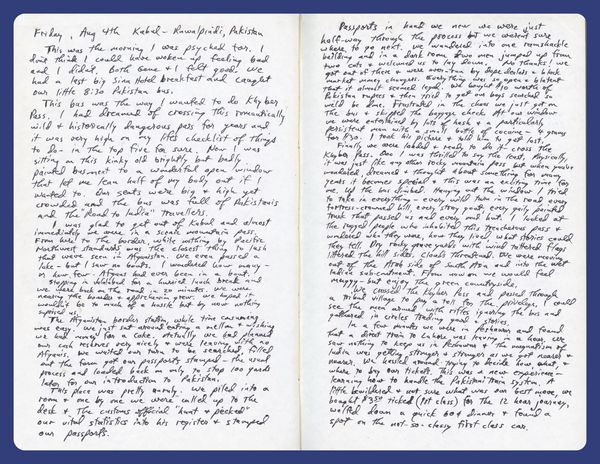 Friday, Aug 4th Kabul - Rawalpindi, Pakistan
This was the morning I was psyched for. I
don't think I could have woken up feeling bad
and I didn't. Both Gene & I felt good. We
had a last big Sina Hotel breakfast and caught
our little 8:30 Pakistan bus.
This bus was the way I wanted to do Khyber
Pass. I had dreamed of crossing this romantically
wild & historically dangerous pass for years and
it was very high on my life's checklist of things
to do - in the top five for sure. Now I was
sitting on this kinky old brightly but badly
painted bus next to a wonderful open window
that let me lean half of my body out if I
wanted to. Our seats were big & high yet
crowded and the bus was full of Pakistanis
and the "Road to India" travellers.
I was glad to get out of Kabul and almost
immediately we were in a scenic mountain pass.
From here to the border, while nothing by Pacific
Northwest standards was the closest thing to lush
that we've seen in Afganistan. We even passed a
lake - but I saw no boats. I wondered how many
or how few Afgans had ever been in a boat.
Stopping in Jalalabad for a hurried lunch break and
we were back on the road in 20 minutes. We were
nearing the border & apprehension grew. We hoped it
wouldn't be to much of a hassle but by now nothing
suprised us.
The Afganistan border station, while time consuming
was easy. We just sat around eating mellon & wishing
we had money for a coke. Actually we had planned
our cash reserves very nicely & were leaving with no
Afganis. We waited our turn to be searched, filled
out the form got our passports stamped - the usual
process and loaded back on only to stop 100 yards
later for our introduction to Pakistan.
This place was pretty unruly. We piled into a
room & one by one we were called up to the
desk & the customs official "hunt & pecked"
our vital statistics into his register & stamped
our passports.
Passports in hand we now we were just
half-way through the process but we weren't sure
where to go next. We wandered into one ramshackle
building and in a dark room two men jumped up from
two cots & welcomed us to lay down. No thanks! We
got out of there & were overrun by dope dealers & black
market money changers. Everything was so open & blatent
that it almost seemed legal. We bought $10 worth of
Pakistan rupees & then tried to get our bags searched so
we'd be done. Frustrated in the chaos we just got on
the bus & skipped the baggage check. At our window
we were entertained by hits of hash & a particularly
persistent man with a small bottle of cocaine - 4 grams
for $30. I took his picture & told him to get lost.
Finally we were loaded & ready to do it - cross the
Khyber Pass. Dee I was thrilled to say the least. Physically,
it was just like any other rocky mountain pass but when you've
wondered, dreamed & thought about something for many
years it becomes special & this was an exciting time for
me. Up the bus climbed. Hanging out the window I tried
to take in everything - every wild turn in the road every
fortress-crowned hill, every stray goat, every gaily painted
truck that passed us and every mud hut. I looked at
the rugged people who inhabited this treacherous pass &
wondered who they were, how they lived, what stories could
they tell. Dry rocky graveyards with wind tattered flags
littered the hill sides. Clouds threatened. We were moving
out of the Arab side of South Asia and into the exotic
Indian subcontinent. From now on we would feel
muggy but enjoy the green countryside.
We crossed the Khyber Pass and passed through
a tribal village to pay a toll for the priviledge. I could
see the men around with rifles ignoring the bus and
gathered in circles trading goods & stories.
In a few minutes we were in Peshawar and found
that a direct train to Lahore was leaving in a hour. We
saw nothing to keep us in Peshawar & the magnatism of
India was getting stronger & stronger as we got nearer &
nearer. We hustled around trying to decide how, what, &
where to buy our tickets. This was a new experience -
learning how to handle the Pakistani train system. A
little bewildered & not sure what was our best move, we
bought $3.50 ticked (1st class) for the 12 hour journey,
wolfed down a quick 60¢ dinner & found a
spot on the not-so-classy first class car.